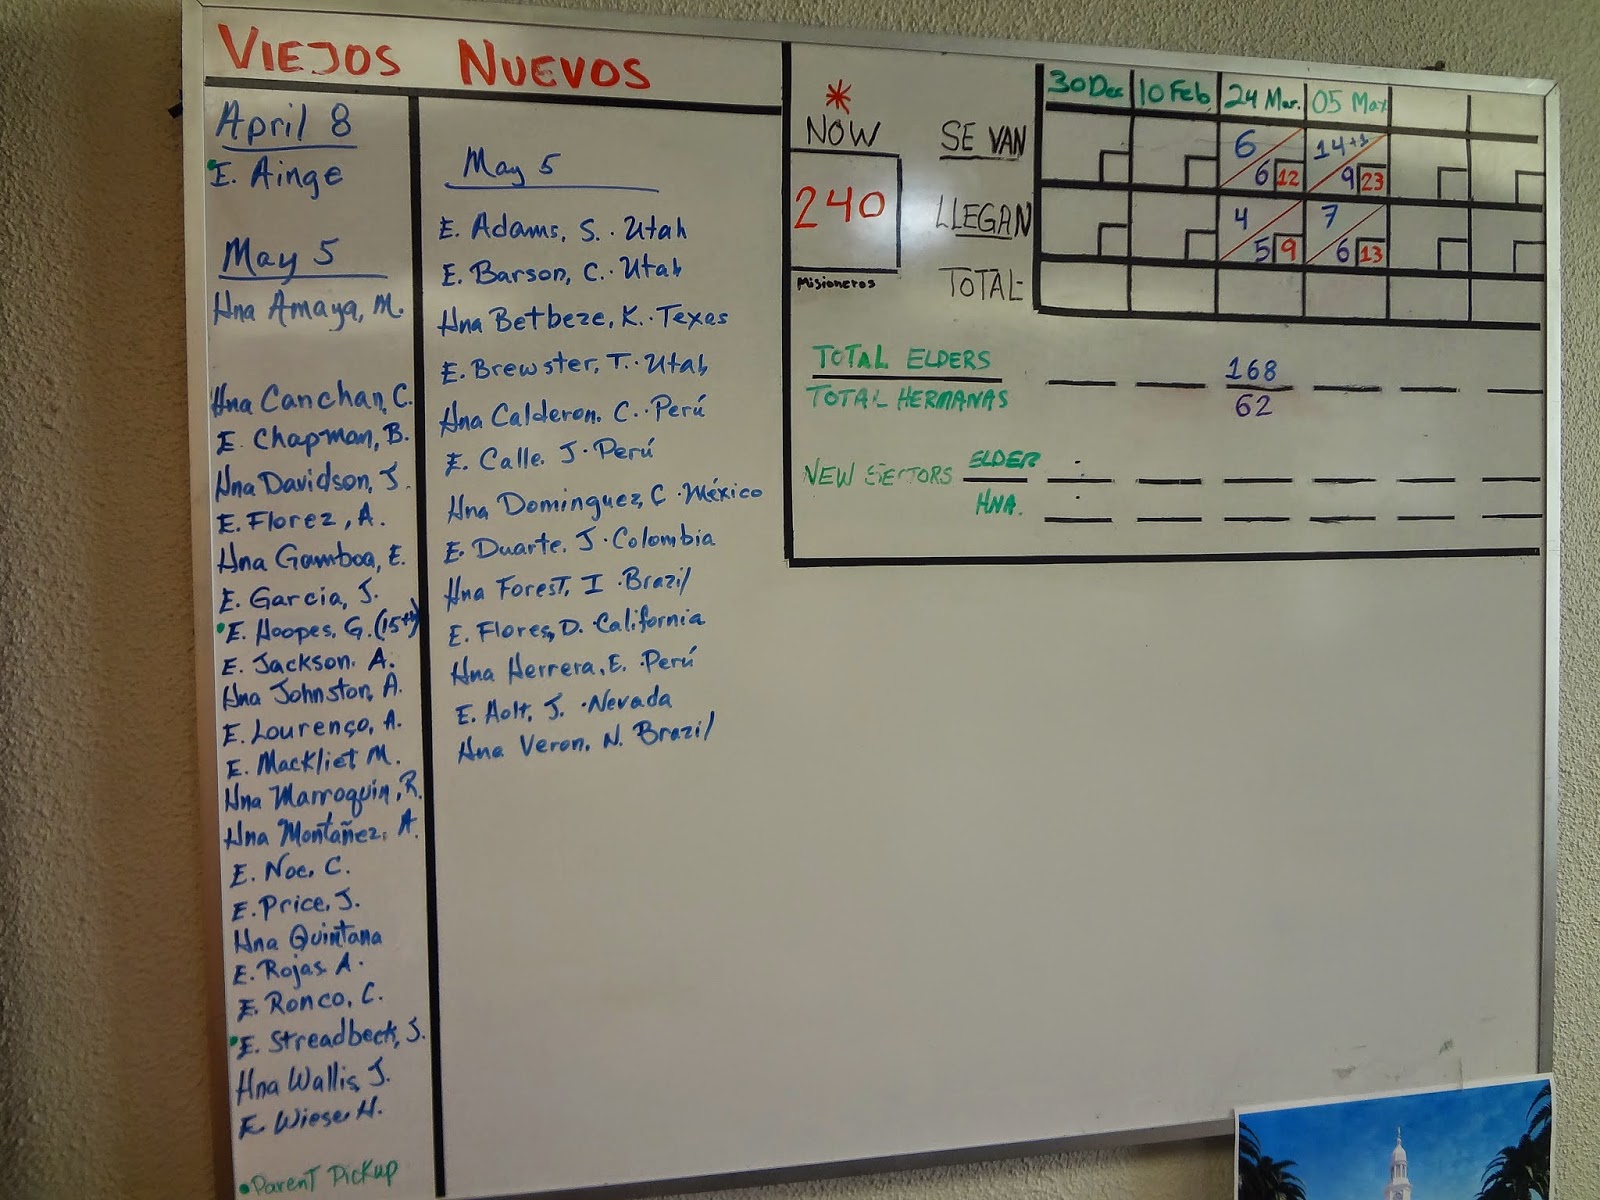 VIEJOS NUEVOS
April 8
E. Ainge
May 5
Hna Amaya, M.
Hna Canchan, C.
E. Chapman, B.
Hna Davidson, J.
E. Florez, A.
Hna Gamboa, E.
E. Garcia, J.
E. Hoopes, G. (15th)
E. Jackson. A.
Hna Johnston, A.
E. Lourenço, A.
E. Mackliet M.
Hna Marroquin, R.
Hna Montañez, A.
E. Noe, C.
E. Price, J.
Hna Quintana
E. Rojas A.
E. Ronco, C.
E. Streadbeck, J.
Hna Wallis, J.
E. Wiese, H.
• Parent Pickup
May 5
E. Adams, S. · Utah
E. Barson, C. · Utah
Hna Betbeze, K. · Texas
E. Brewster, T. · Utah
Hna Calderon, C. · Perú
E. Calle, J · Perú
Hna Dominguez, C · México
E. Duarte, J · Colombia
Hna Forest, I · Brazil
E. Flores, D. · California
Hna Herrera, E. · Perú
E. Holt, J. · Nevada
Hna Veron, N. Brazil
* NOW
240
Misioneros
30 Dec 10 Feb 24 Mar. 05 May
SE VAN 6 6 12 14+1 9 23
LLEGAN 4 5 9 7 6 13
TOTAL
TOTAL ELDERS 168
TOTAL HERMANAS 62
NEW SECTORS ELDER
HNA.